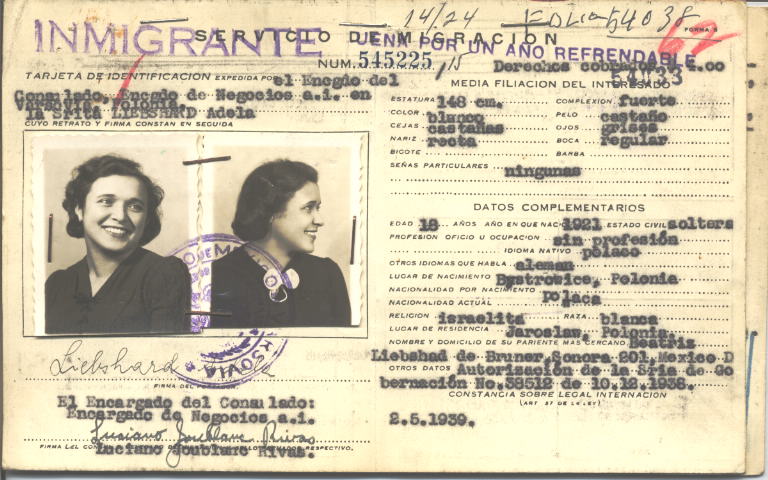 14/24 FOLIO 54038
INMIGRANTE
SERVICIO DE MIGRACION
FORMA 5
VENN POR UN AÑO REFRENDABLE
NUM. 545225
Derechos cobrados
TARJETA DE IDENTIFICACION EXPEDIDA POR el Encgio del
Consulado, Encgdo de Negocios a.i. en
Varsovia, Polonia,
la Srita LIEBSHARD Adela
CUYO RETRATO Y FIRMA CONSTAN EN SEGUIDA
Liebshard
FIRMA DEL
El Encargado del Consulado:
Encargado de Negocios a.i.
Luciano Joublanc Rivas
Luciano Joublanc Rivas.
MEDIA FILIACION DEL INTERESADO
ESTATURA 148 cm. COMPLEXION fuerte
COLOR blanco PELO castaño
CEJAS castañas OJOS grises
NARIZ recta BOCA regular
BIGOTE BARBA
SEÑAS PARTICULARES ningunas
DATOS COMPLEMENTARIOS
EDAD 18 AÑOS AÑO EN QUE NACIO 1921 ESTADO CIVIL soltera
PROFESION OFICIO U OCUPACION sin profesión
IDIOMA NATIVO polaco
OTROS IDIOMAS QUE HABLA aleman
LUGAR DE NACIMIENTO Bystrowice, Polonia
NACIONALIDAD POR NACIMIENTO
NACIONALIDAD ACTUAL polaca
RELIGION israelita RAZA blanca
LUGAR DE RESIDENCIA Jaroslaw, Polonia.
NOMBRE Y DOMICILIO DE SU PARIENTE MAS CERCANO Beatriz
Liebshad de Bruner, Sonora 201, Mexico D
OTROS DATOS Autorización de la Sria de Go
bernación No.38512 de 10.12.1938.
CONSTANCIA SOBRE LEGAL INTERNACION
(ART 57 DE LA LEY)
2.5.1939.